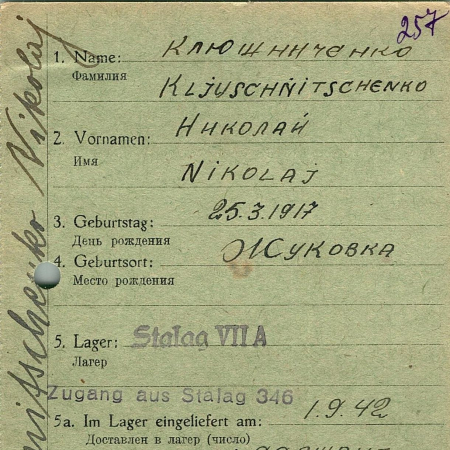 257
1. Name: Клюшниченко
Фамилия
Kljuschnitschenko
2. Vornamen: Николай
Имя
Nikolaj
3. Geburtstag: 25.3.1917
День рождения
4. Geburtsort: Жуковка
Место рождения
5. Lager: Stalag VII A
Лагер
Zugang aus Stalag 346
5a. Im Lager eingeliefert am: 1.9.42
Доставлен в лагер (число)
Nikolaj